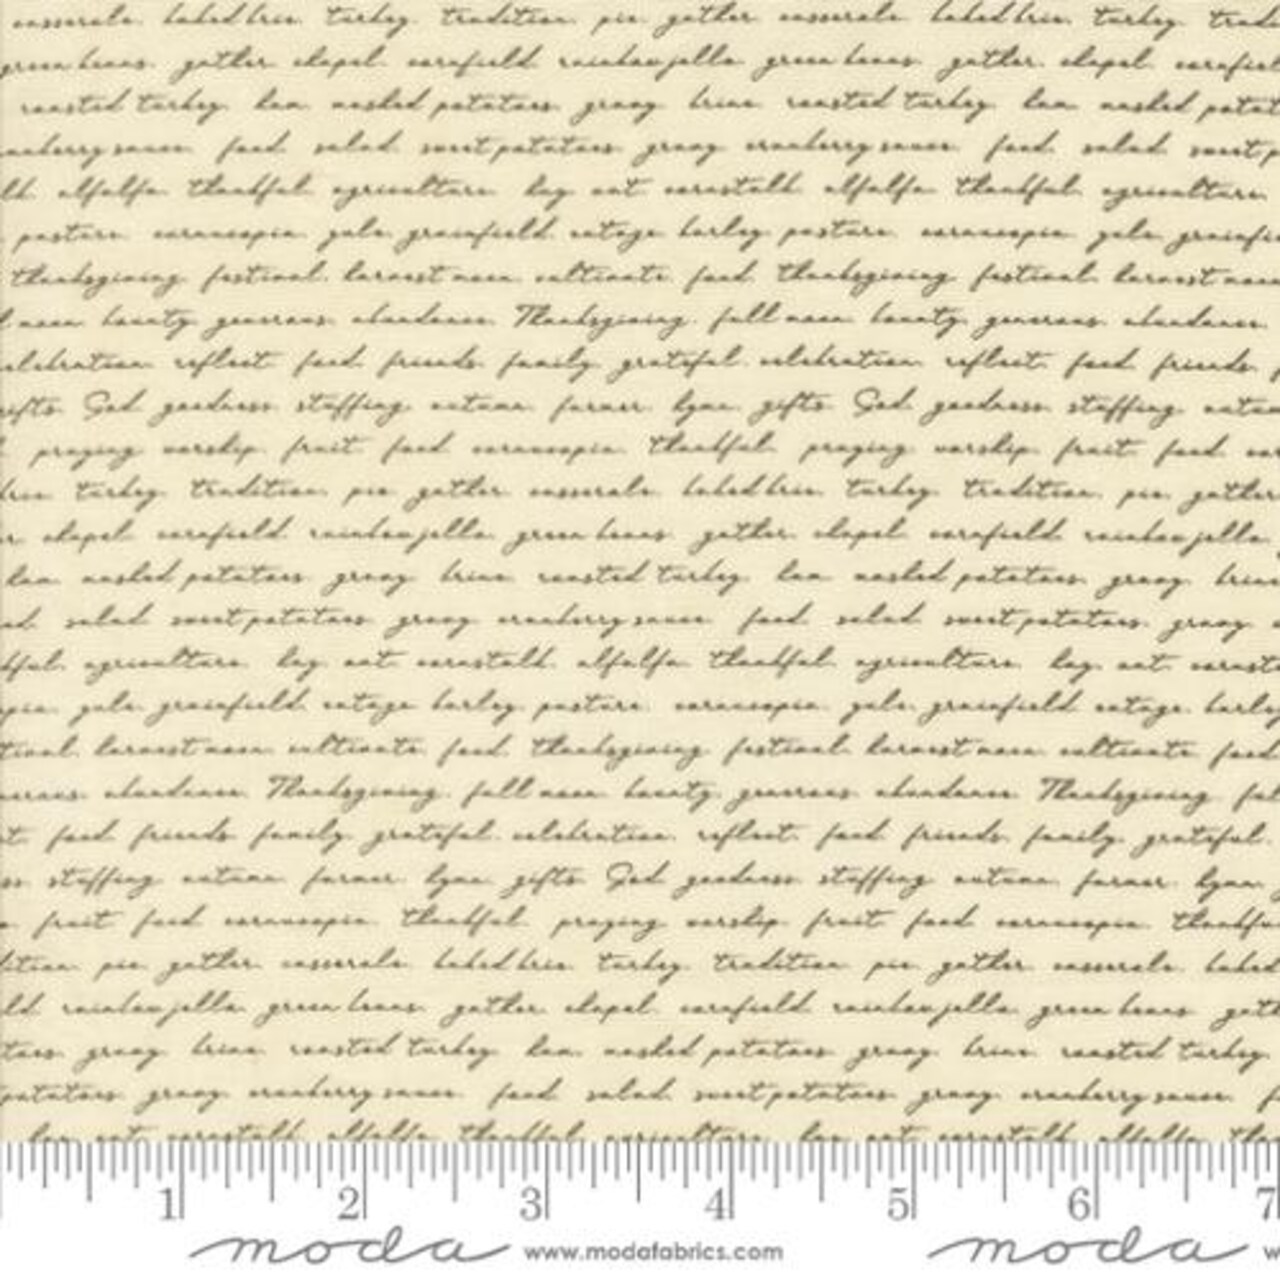 casserole baked brie turkey tradition pie gather casserole baked brie turkey
green beans gather chapel cornfield rainbow jello green beans gather chapel
roasted turkey ham mashed potatoes gravy brine roasted turkey ham mashed
sauce food salad sweet potatoes gravy cranberry sauce food salad sweet
alfalfa thankful agriculture hay oat cornstalk alfalfa thankful agriculture
pasture cornucopia yule grainfield cottage barley pasture cornucopia yule
thanksgiving festival harvest moon cultivate food thanksgiving festival harvest
moon bounty generous abundance Thanksgiving fall moon bounty generous abundance
celebration reflect food friends family grateful celebration reflect food friends
gifts God goodness stuffing autumn farmer hymn gifts God goodness stuffing
praying worship fruit food cornucopia thankful praying worship fruit food
brie turkey tradition pie gather casserole baked brie turkey tradition pie gather
chapel cornfield rainbow jello green beans gather chapel cornfield rainbow jello
ham mashed potatoes gravy brine roasted turkey ham mashed potatoes gravy brine
salad sweet potatoes gravy cranberry sauce food salad sweet potatoes gravy
agriculture hay oat cornstalk alfalfa thankful agriculture hay oat
yule grainfield cottage barley pasture cornucopia yule grainfield cottage barley
harvest moon cultivate food thanksgiving festival harvest moon cultivate food
abundance Thanksgiving fall moon bounty generous abundance Thanksgiving
food friends family grateful celebration reflect food friends family grateful
stuffing autumn farmer hymn gifts God goodness stuffing autumn farmer hymn
fruit food cornucopia thankful praying worship fruit food cornucopia
pie gather casserole baked brie turkey tradition pie gather casserole baked
rainbow jello green beans gather chapel cornfield rainbow jello green beans
gravy brine roasted turkey ham mashed potatoes gravy brine roasted turkey
potatoes gravy cranberry sauce food salad sweet potatoes gravy cranberry sauce
hay oat cornstalk alfalfa thankful agriculture hay oat cornstalk alfalfa
1 2 3 4 5 6 7
moda www.modafabrics.com moda